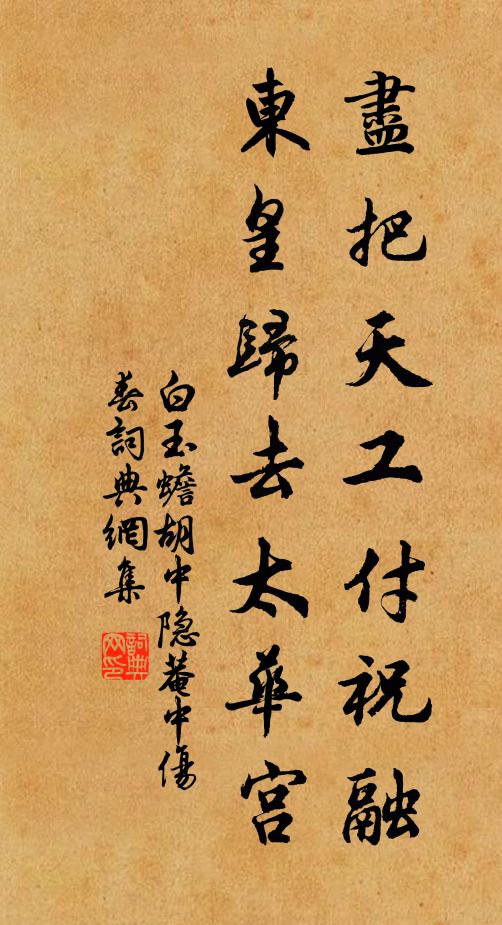 盡把天工付祝融
東皇歸去太華宮
白玉蟾胡中隐菴中傷
春詞典網集
詞典网印